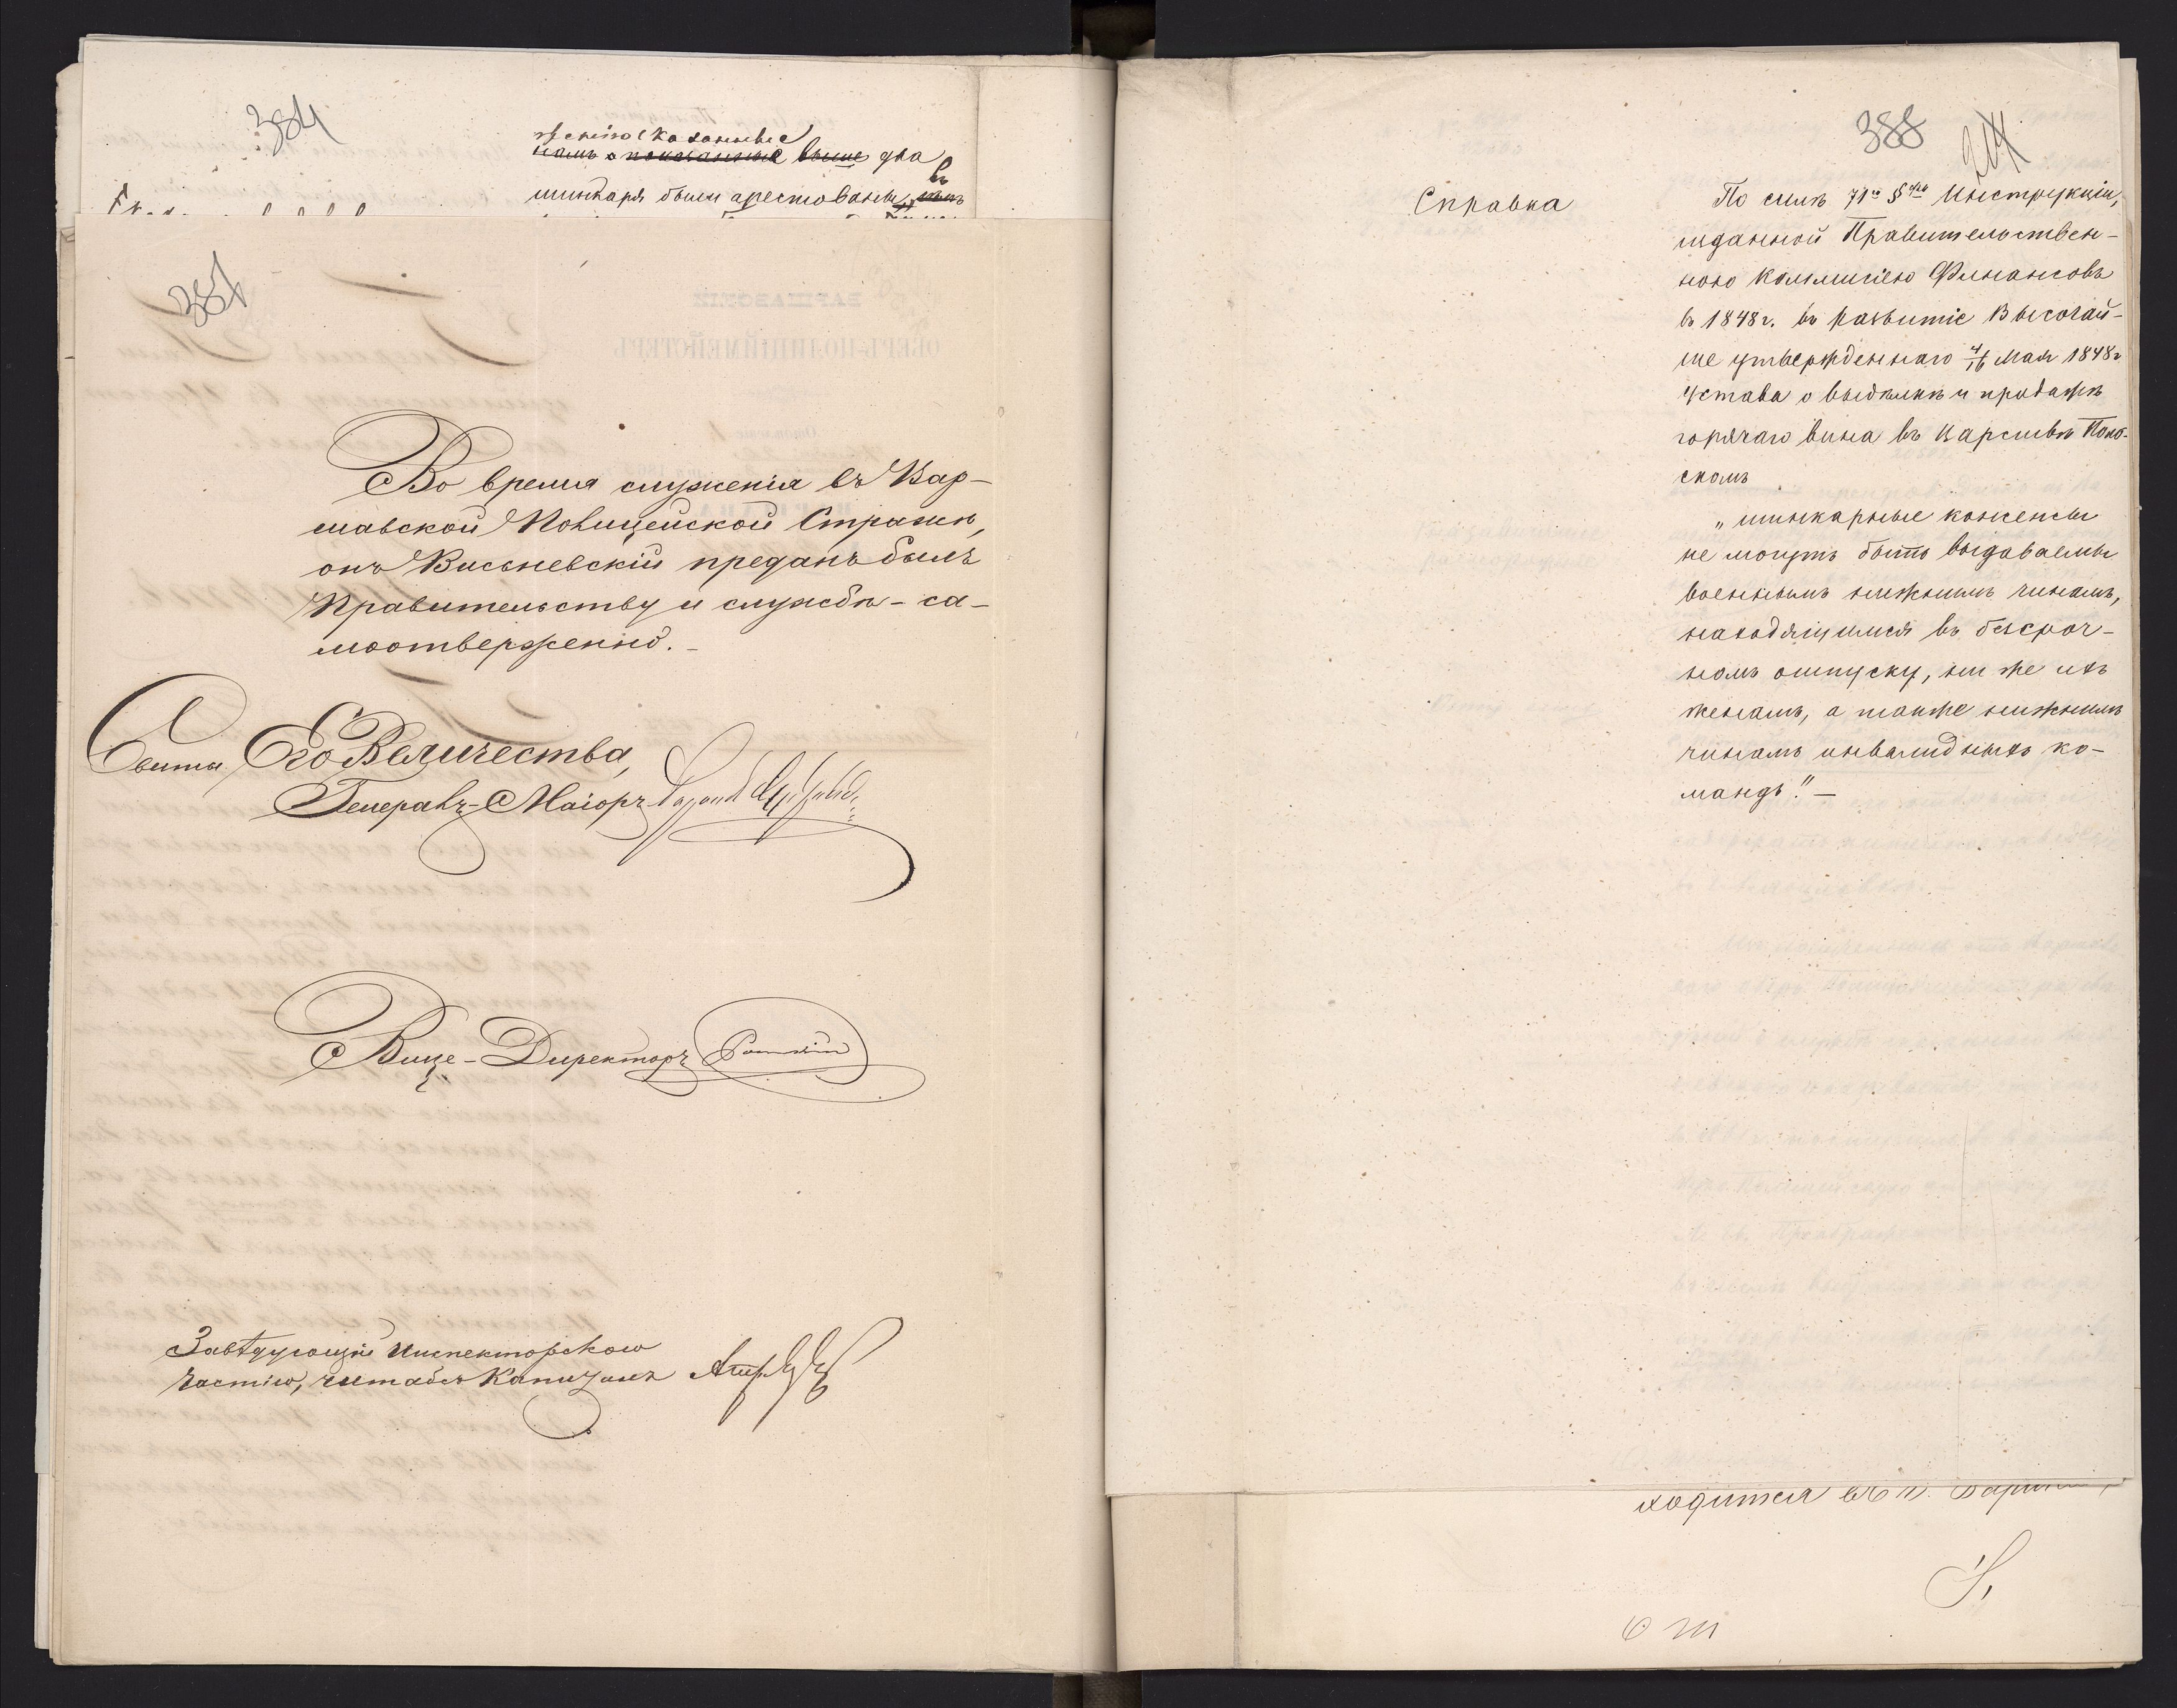 384
жсписказанные
намъ о показанные выше два
шинкаря были арестованы, въ
387
Во время служенія въ Вар-
шавской Полицейской Стражѣ,
онъ Висьневскій преданъ былъ
Правительству и службѣ - са-
моотверженно. -
Свиты Его Величества,
Генералъ-Маіоръ
Вице-Директоръ
Завѣдующій Инспекторскою
частію, Штабсъ Капитанъ
388
Справка
По силѣ 71го §фа Инструкціи,
изданной Правительствен-
ною Коммисіею Финансовъ
въ 1848 г. въ развитіе Высочай-
ше утвержденнаго 4/16 Мая 1848 г
Устава о выдѣлкѣ и продажѣ
горячаго вина въ Царствѣ Поль-
скомъ
„шинкарные консенсы
не могутъ быть выдаваемы
военнымъ нижнимъ чинамъ,
находящимся въ безсроч-
номъ отпуску, ни же ихъ
женамъ, а также нижнимъ
чинамъ инвалидныхъ ко-
мандъ." —
ходится въ г.